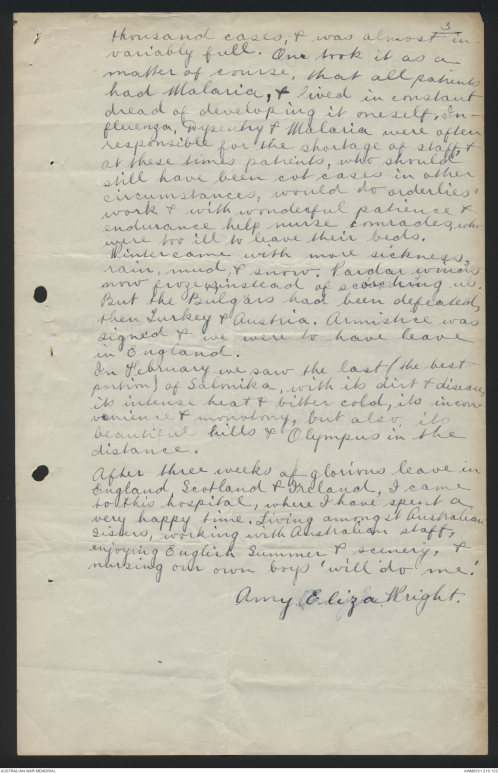 3
thousand cases, & was almost in-
variably full. One took it as a
matter of course, that all patients
had Malaria, & lived in constant
dread of developing it oneself. In-
fluenza, Dysentry & Malaria were often
responsible for the shortage of staff, &
at these times patients, who should
still have been cot cases in other
circumstances, would do orderlies'
work & with wonderful patience &
endurance help nurse comrades, who
were too ill to leave their beds.
Winter came with more sickness,
rain, mud, & snow. Vardar winds
now froze, instead of scorching us.
But the Bulgars had been defeated,
then Turkey & Austria. Armistice was
signed & we were to have leave
in England.
In February we saw the last (the best
portion) of Salonika, with its dirt & disease,
its intense heat & bitter cold, its incon-
venience & monotony, but also its
beautiful hills & Olympus in the
distance.
After three weeks of glorious leave in
England Scotland & Ireland, I came
to this hospital, where I have spent a
very happy time. Living amongst Australian
Sisters, working with Australian staff,
enjoying English Summer & scenery, &
nursing our own boys 'will do me'.
Amy Eliza Wright.
AUSTRALIAN WAR MEMORIAL